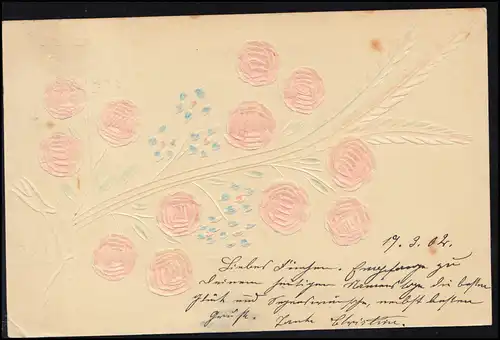 19. 3. 02.
Liebes Finchen. Empfange zu
Deinem heutigen Namenstage die besten
Glück und Segenswünsche, nebst besten
Gruß. Tante Christine.